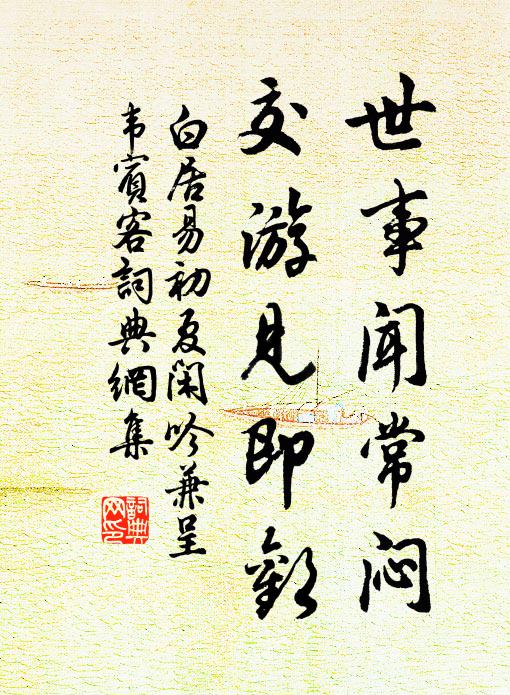 世事闻常闷
交游见即欢
白居易初夏闲吟兼呈
韦宾客詞典網集
詞典
网印